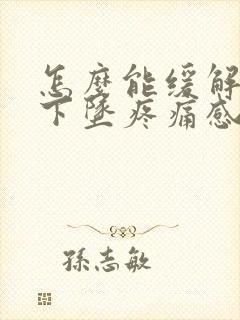 怎麼能緩解
下墜疼痛感
孫志敏